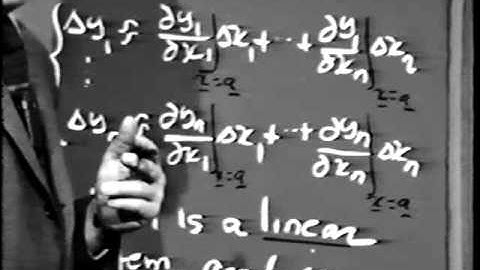 { Δy₁ ≈ ∂y₁/∂x₁|x=a Δx₁ + ⋯ + ∂y₁/∂xₙ|x=a Δxₙ
⋮
Δyₙ ≈ ∂yₙ/∂x₁|x=a Δx₁ + ⋯ + ∂yₙ/∂xₙ|x=a Δxₙ
is a linear